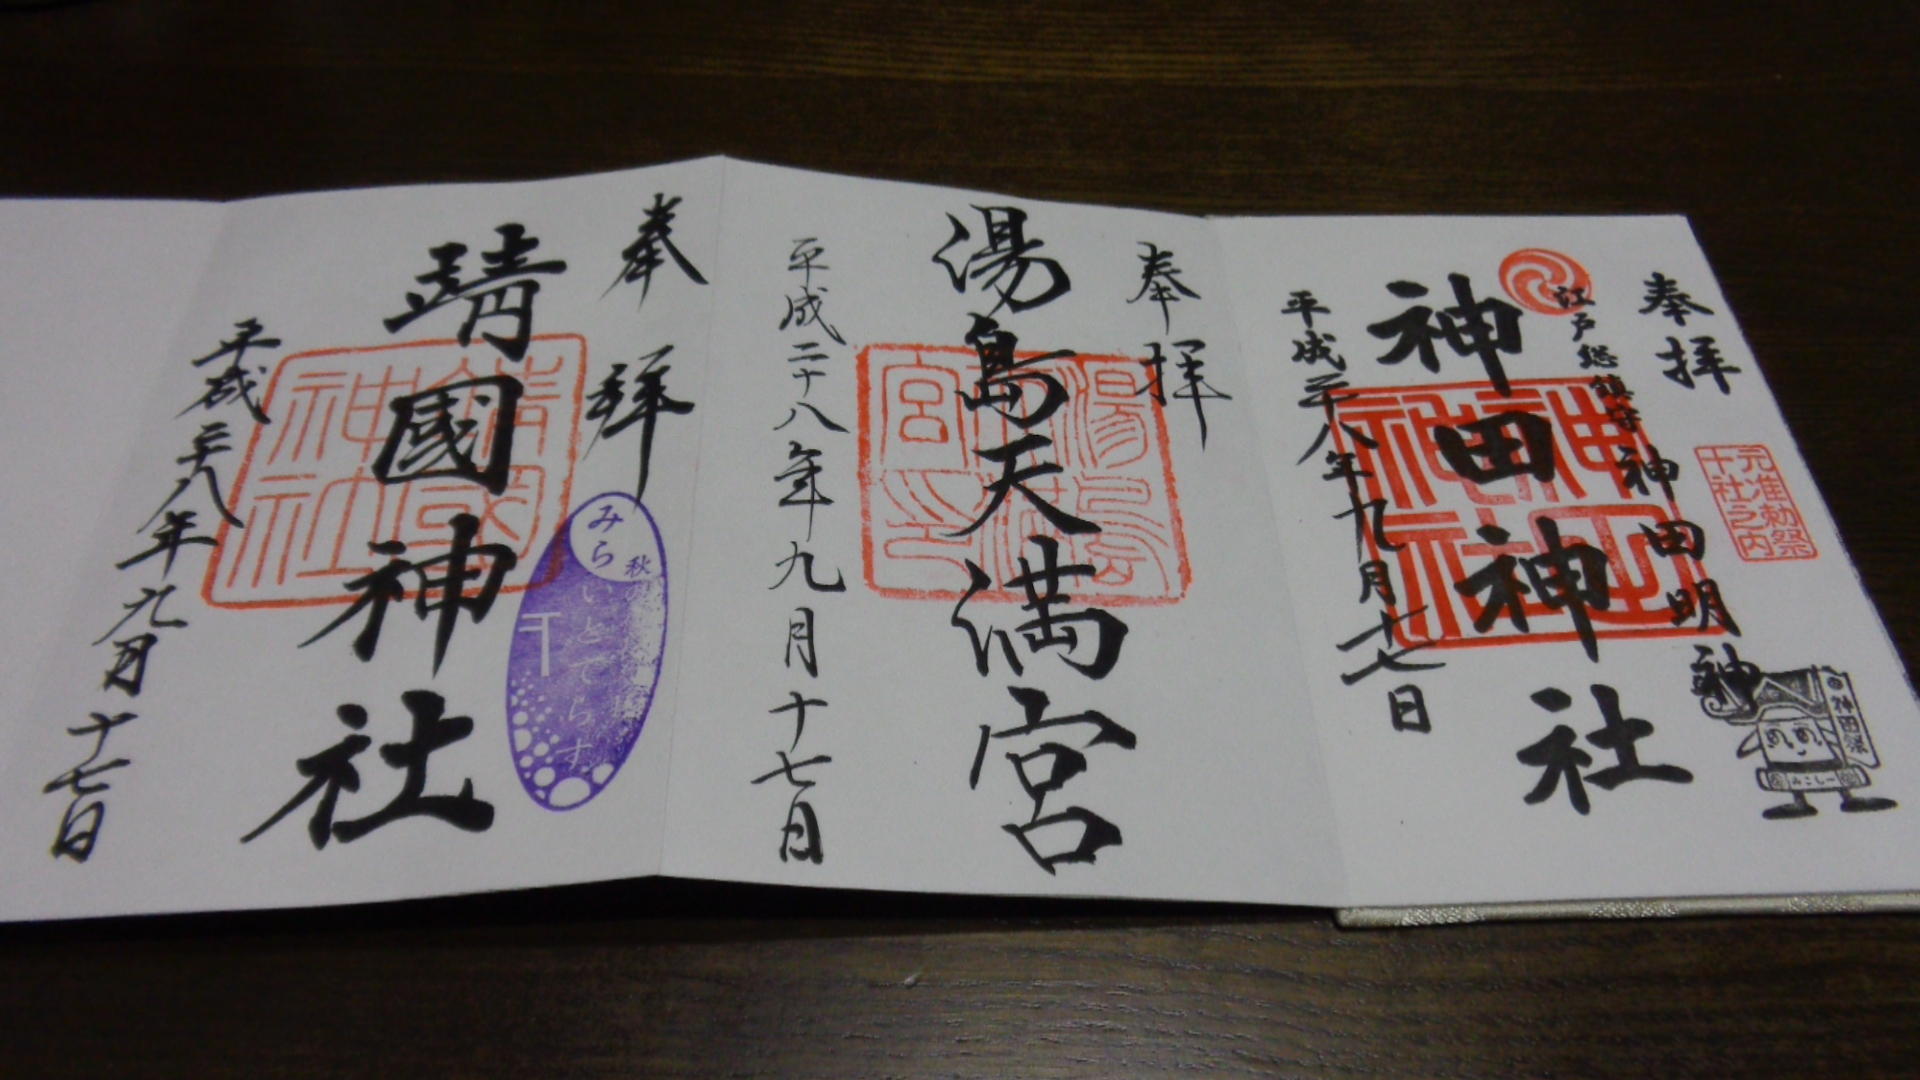 奉拝
元准勅祭
十社之内
江戸総鎮守神田明神
神田神社
平成二十八年九月十七日
神田祭
みこしー
奉拝
湯島天満宮
平成二十八年九月十七日
奉拝
靖國神社
靖國
神社
秋の
みらいとてらす
平成二十八年九月十七日